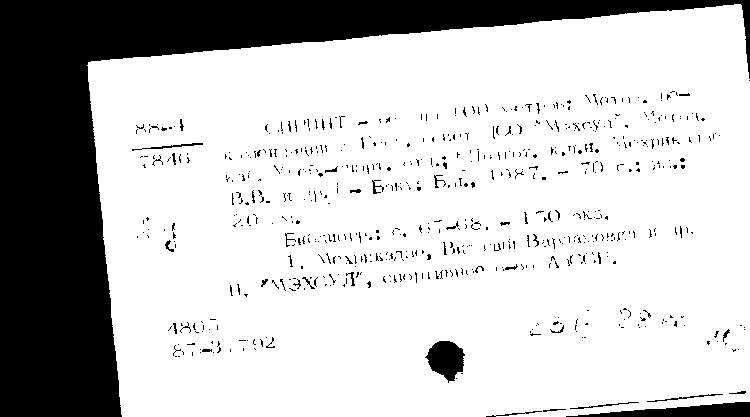 88-4
7846
СПРИНТ - бег на 100 метров: Метод. ре-
комендации / Респ. совет ДСО "Мэхсул". Метод.
каб. Учеб.-спорт. отд.; [Подгот. к.п.н. Мехрикадзе
В.В. и др.] - Баку: Б.и., 1987. - 70 с.: ил.;
20 см.
Библиогр.: с. 67-68. - 150 экз.
1. Мехрикадзе, Виталий Варламович и др.
II. "МЭХСУЛ", спортивное о-во АзССР.
4805
87-3.792